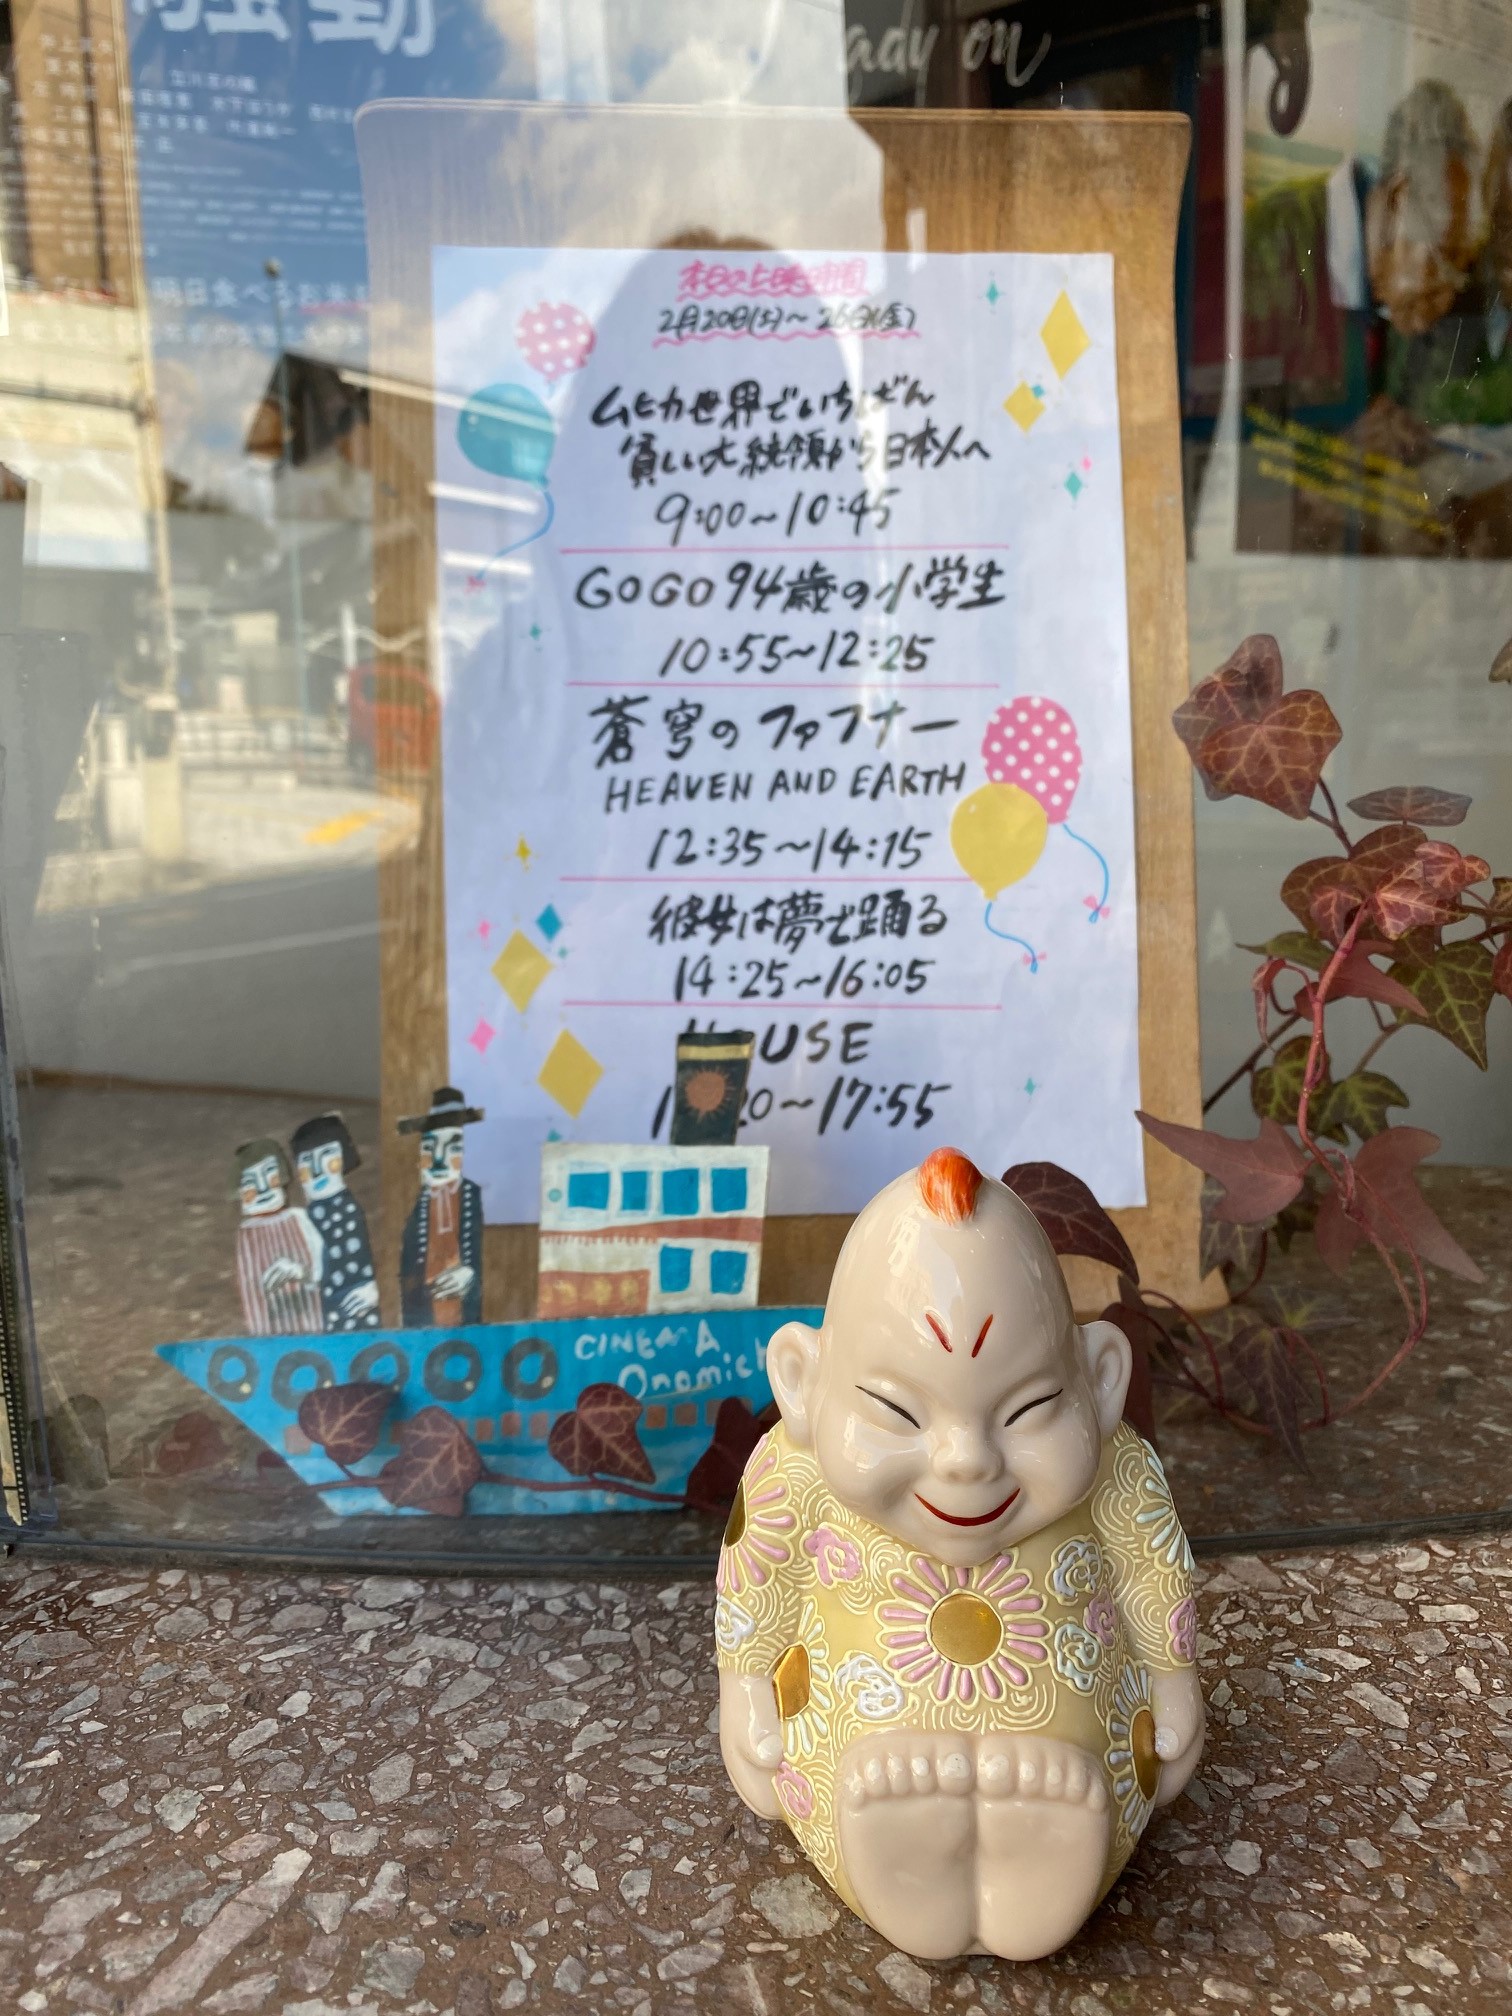 騒動
ady on
明日食べるお米
本日の上映時間
2月20日(土)〜26日(金)
ムヒカ世界でいちばん
貧しい大統領から日本人へ
9:00〜10:45
GOGO 94歳の小学生
10:55〜12:25
蒼穹のファフナー
HEAVEN AND EARTH
12:35〜14:15
彼女は夢で踊る
14:25〜16:05
USE
20〜17:55
CINEMA
Onomich